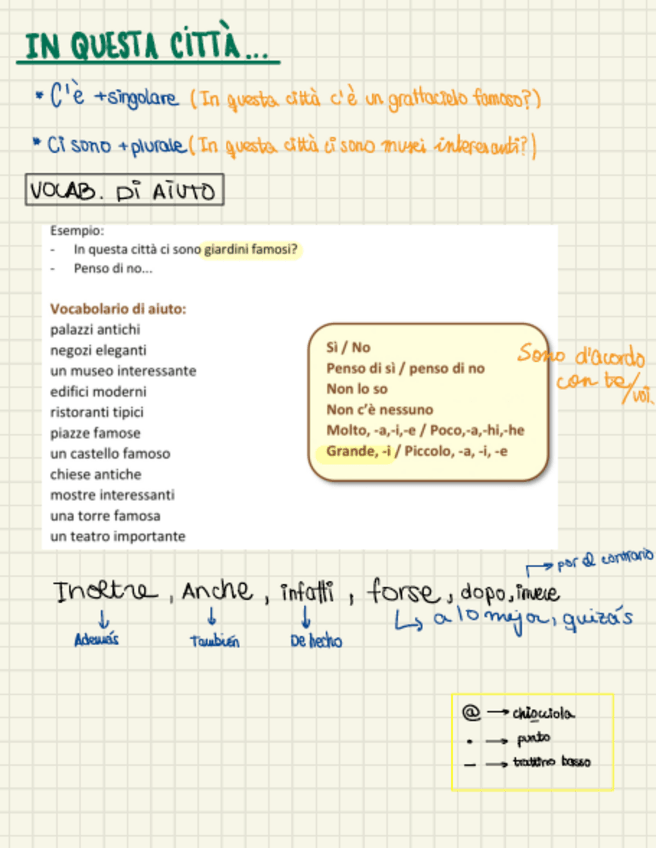 IN QUESTA CITTÀ...
* C'è +singolare (In questa città c'è un grattacielo famoso?)
* Ci sono +plurale (In questa città ci sono musei interesanti?)
VOCAB. DI AIUTO
Esempio:
- In questa città ci sono giardini famosi?
- Penso di no...
Vocabolario di aiuto:
palazzi antichi
negozi eleganti
un museo interessante
edifici moderni
ristoranti tipici
piazze famose
un castello famoso
chiese antiche
mostre interessanti
una torre famosa
un teatro importante
Sì / No
Penso di sì / penso di no
Non lo so
Non c'è nessuno
Molto, -a,-i,-e / Poco,-a,-hi,-he
Grande, -i / Piccolo, -a, -i, -e
Sono d'acordo
con te/voi.
→ por el contrario
Inoltre, Anche, infatti, forse, dopo, invece
↳ a lo mejor, quizás
Además También De hecho
@ → chiocciola
. → punto
_ → trattino basso